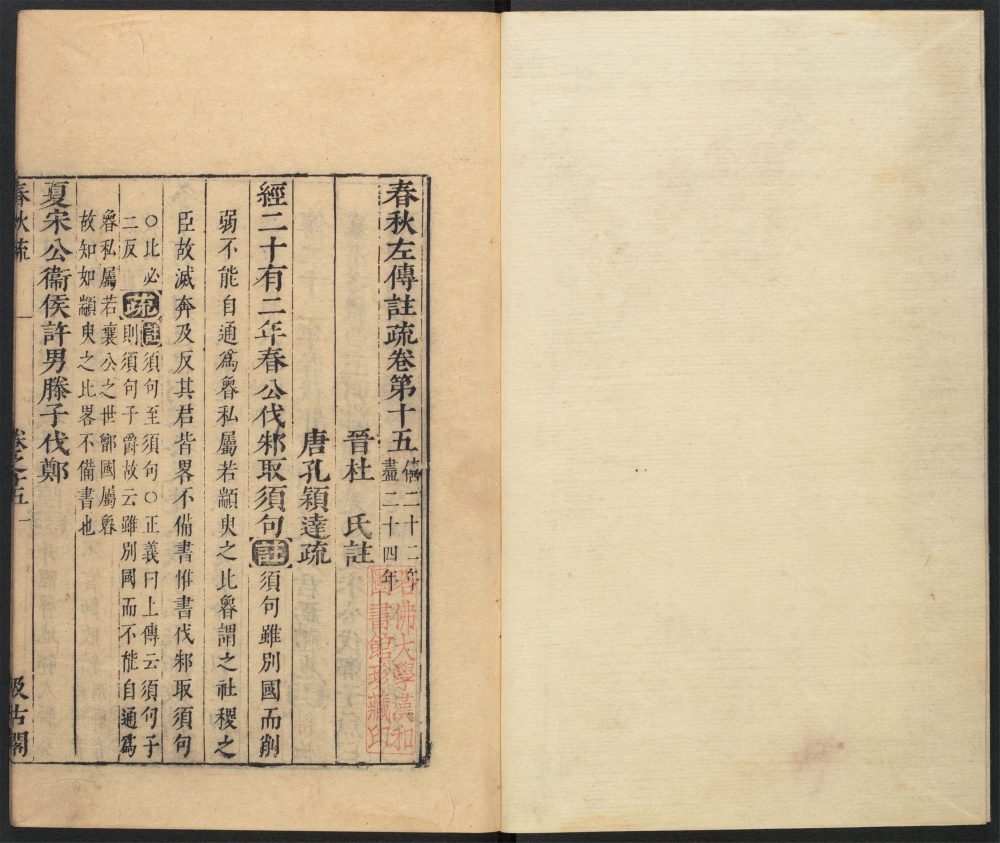 春秋左傳註疏卷第十五
僖二十二年
盡二十四年
晉杜　氏註
唐孔穎達疏
經二十有二年春公伐邾取須句註須句雖別國而削
弱不能自通爲魯私屬若顓臾之比魯謂之社稷之
臣故滅奔及反其君皆畧不備書惟書伐邾取須句
○此必
二反
疏
註須句至須句○正義曰上傳云須句子
則須句子爵故云雖別國而不能自通爲
魯私屬若襄公之世鄫國屬魯
故知如顓臾之比畧不備書也
夏宋公衞侯許男滕子伐鄭
春秋疏
卷之十五
一
汲古閣
哈佛大學漢和
圖書館珍藏印